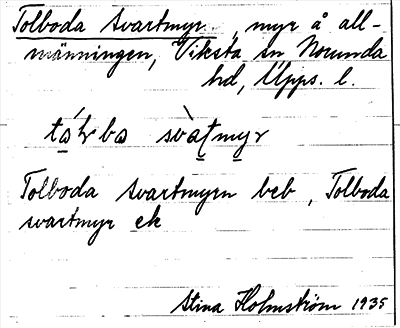 Tolboda Svartmyr, myr å all-
männingen, Viksta sn Norunda
hd, Upps. l.
Tolboda Svartmyrn beb, Tolboda
svartmyr ek
Stina Holmström 1935